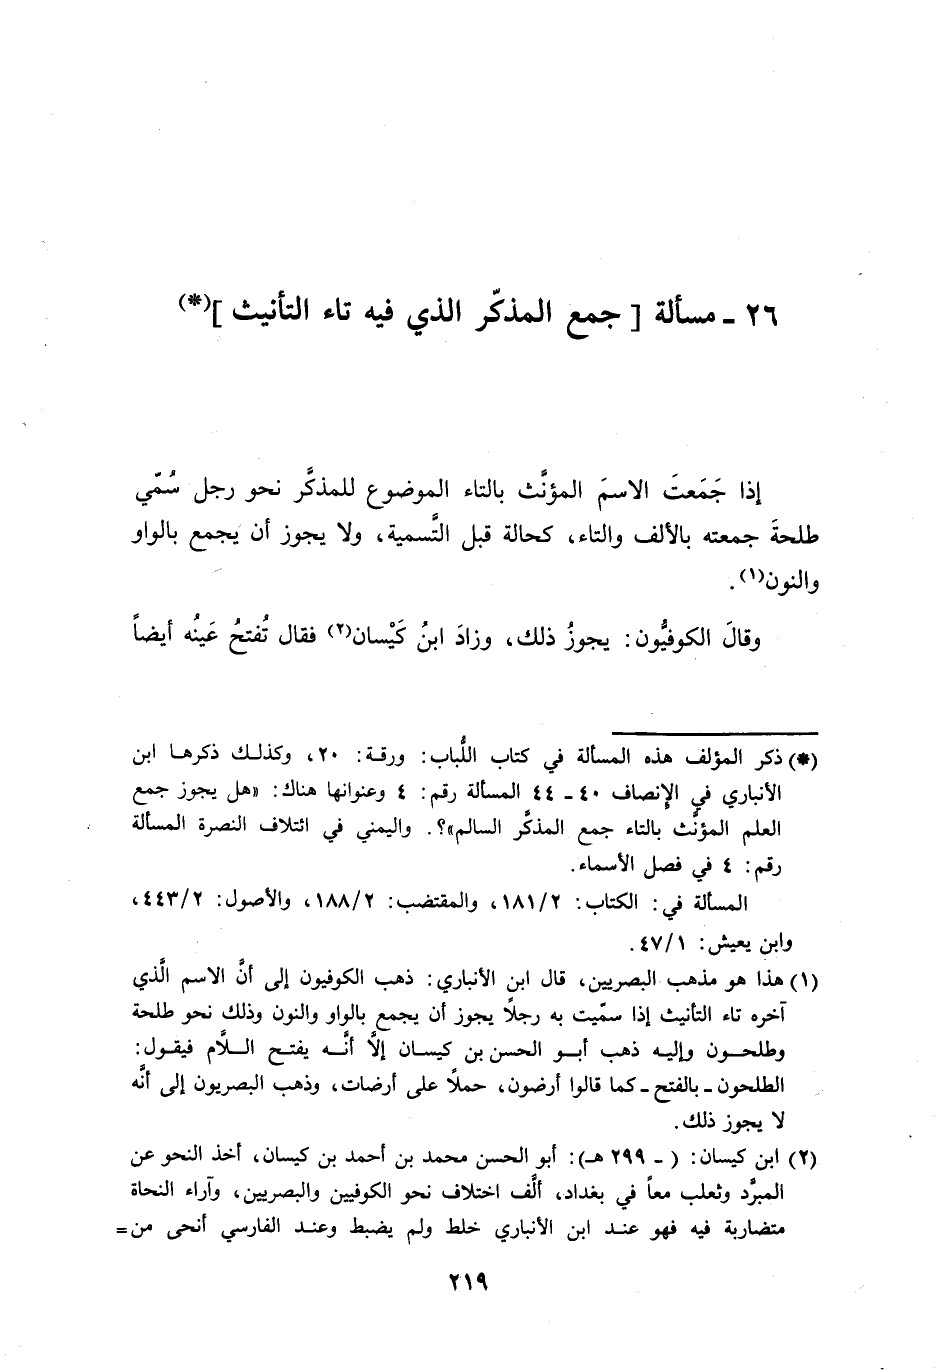 ٢٦ ـ مسألة [ جمع المذكّر الذي فيه تاء التأنيث ](*)
إذا جَمَعتَ الاسمَ المؤنَّث بالتاء الموضوع للمذكَّر نحو رجل سُمّي
طلحةَ جمعته بالألف والتاء، كحالة قبل التَّسمية، ولا يجوز أن يجمع بالواو
والنون(١).
وقالَ الكوفيُّون: يجوزُ ذلك، وزادَ ابنُ كَيْسان(٢) فقال تُفتحُ عَينُه أيضاً
(*) ذكر المؤلف هذه المسألة في كتاب اللُّباب: ورقة: ٢٠، وكذلك ذكرها ابن
الأنباري في الإنصاف ٤٠ ـ ٤٤ المسألة رقم: ٤ وعنوانها هناك: «هل يجوز جمع
العلم المؤنَّث بالتاء جمع المذكَّر السالم»؟. واليمني في ائتلاف النصرة المسألة
رقم: ٤ في فصل الأسماء.
المسألة في: الكتاب: ١٨١/٢، والمقتضب: ١٨٨/٢، والأصول: ٤٤٣/٢،
وابن يعيش: ٤٧/١.
(١) هذا هو مذهب البصريين، قال ابن الأنباري: ذهب الكوفيون إلى أنَّ الاسم الَّذي
آخره تاء التأنيث إذا سمّيت به رجلًا يجوز أن يجمع بالواو والنون وذلك نحو طلحة
وطلحـون وإليـه ذهب أبـو الحسن بن كيسان إلَّا أنَّـه يفتـح الـلَّام فيقول:
الطلحون ـ بالفتح ـ كما قالوا أرضون، حملًا على أرضات، وذهب البصريون إلى أنَّه
لا يجوز ذلك.
(٢) ابن كيسان: ( ـ ٢٩٩ هـ): أبو الحسن محمد بن أحمد بن كيسان، أخذ النحو عن
المبرَّد وثعلب معاً في بغداد، ألَّف اختلاف نحو الكوفيين والبصريين، وآراء النحاة
متضاربة فيه فهو عنـد ابن الأنباري خلط ولم يضبط وعند الفارسي أنحى من=
٢١٩